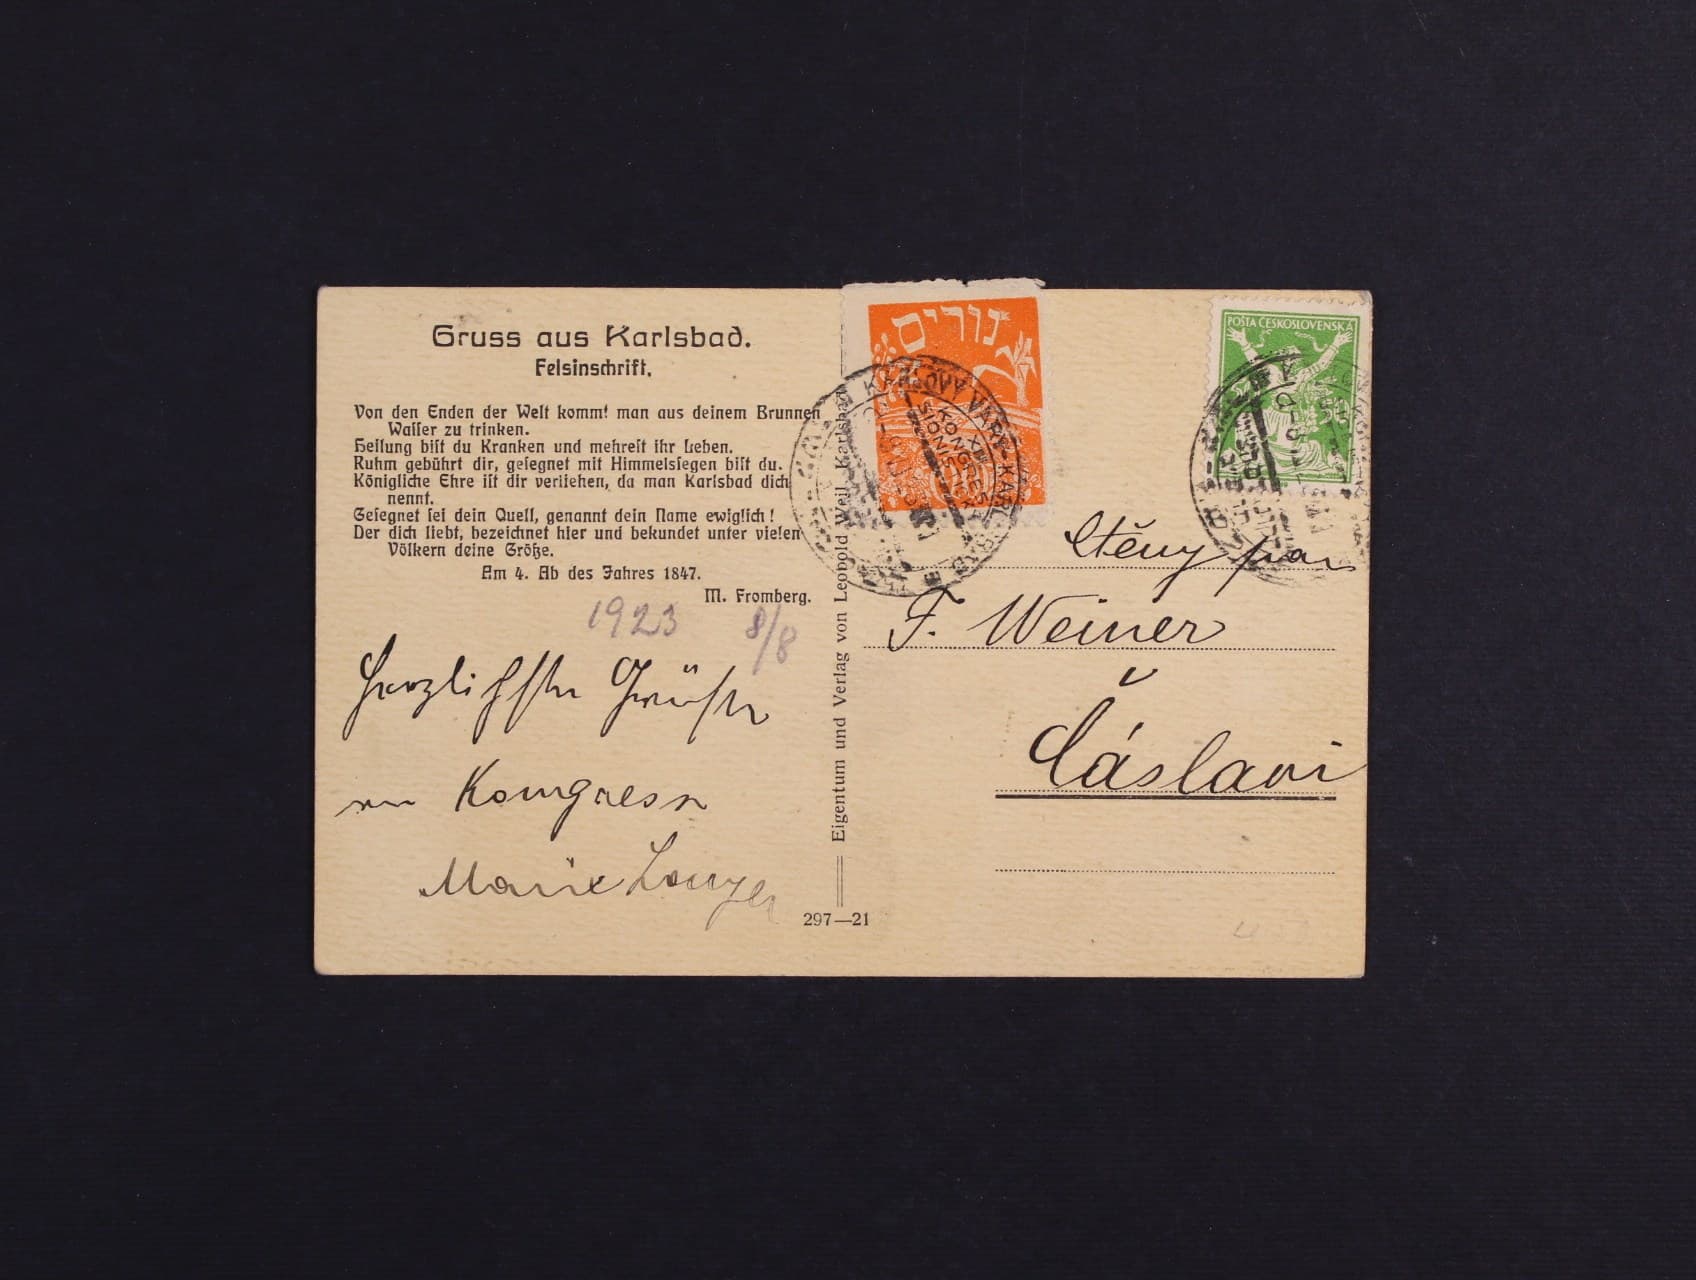 Gruss aus Karlsbad.
Felsinschrift.
Von den Enden der Welt kommt man aus deinem Brunnen
Wasser zu trinken.
Heilung bist du Kranken und mehrest ihr Leben.
Ruhm gebührt dir, gesegnet mit Himmelssegen bist du.
Königliche Ehre ist dir verliehen, da man Karlsbad dich
nennt.
Gesegnet sei dein Quell, genannt dein Name ewiglich!
Der dich liebt, bezeichnet hier und bekundet unter vielen
Völkern deine Größe.
Am 4. Ab des Jahres 1847.
M. Fromberg.
1923 8/8
Herzlichste Grüße
Kongress
Marie
Eigentum und Verlag von Leopold Weil, Karlsbad
297—21
KARLOVY VARY - KARLSBAD
XIII
KONGRES
SIONIST
POŠTA ČESKOSLOVENSKÁ
pan
F. Weiner
Čáslavi